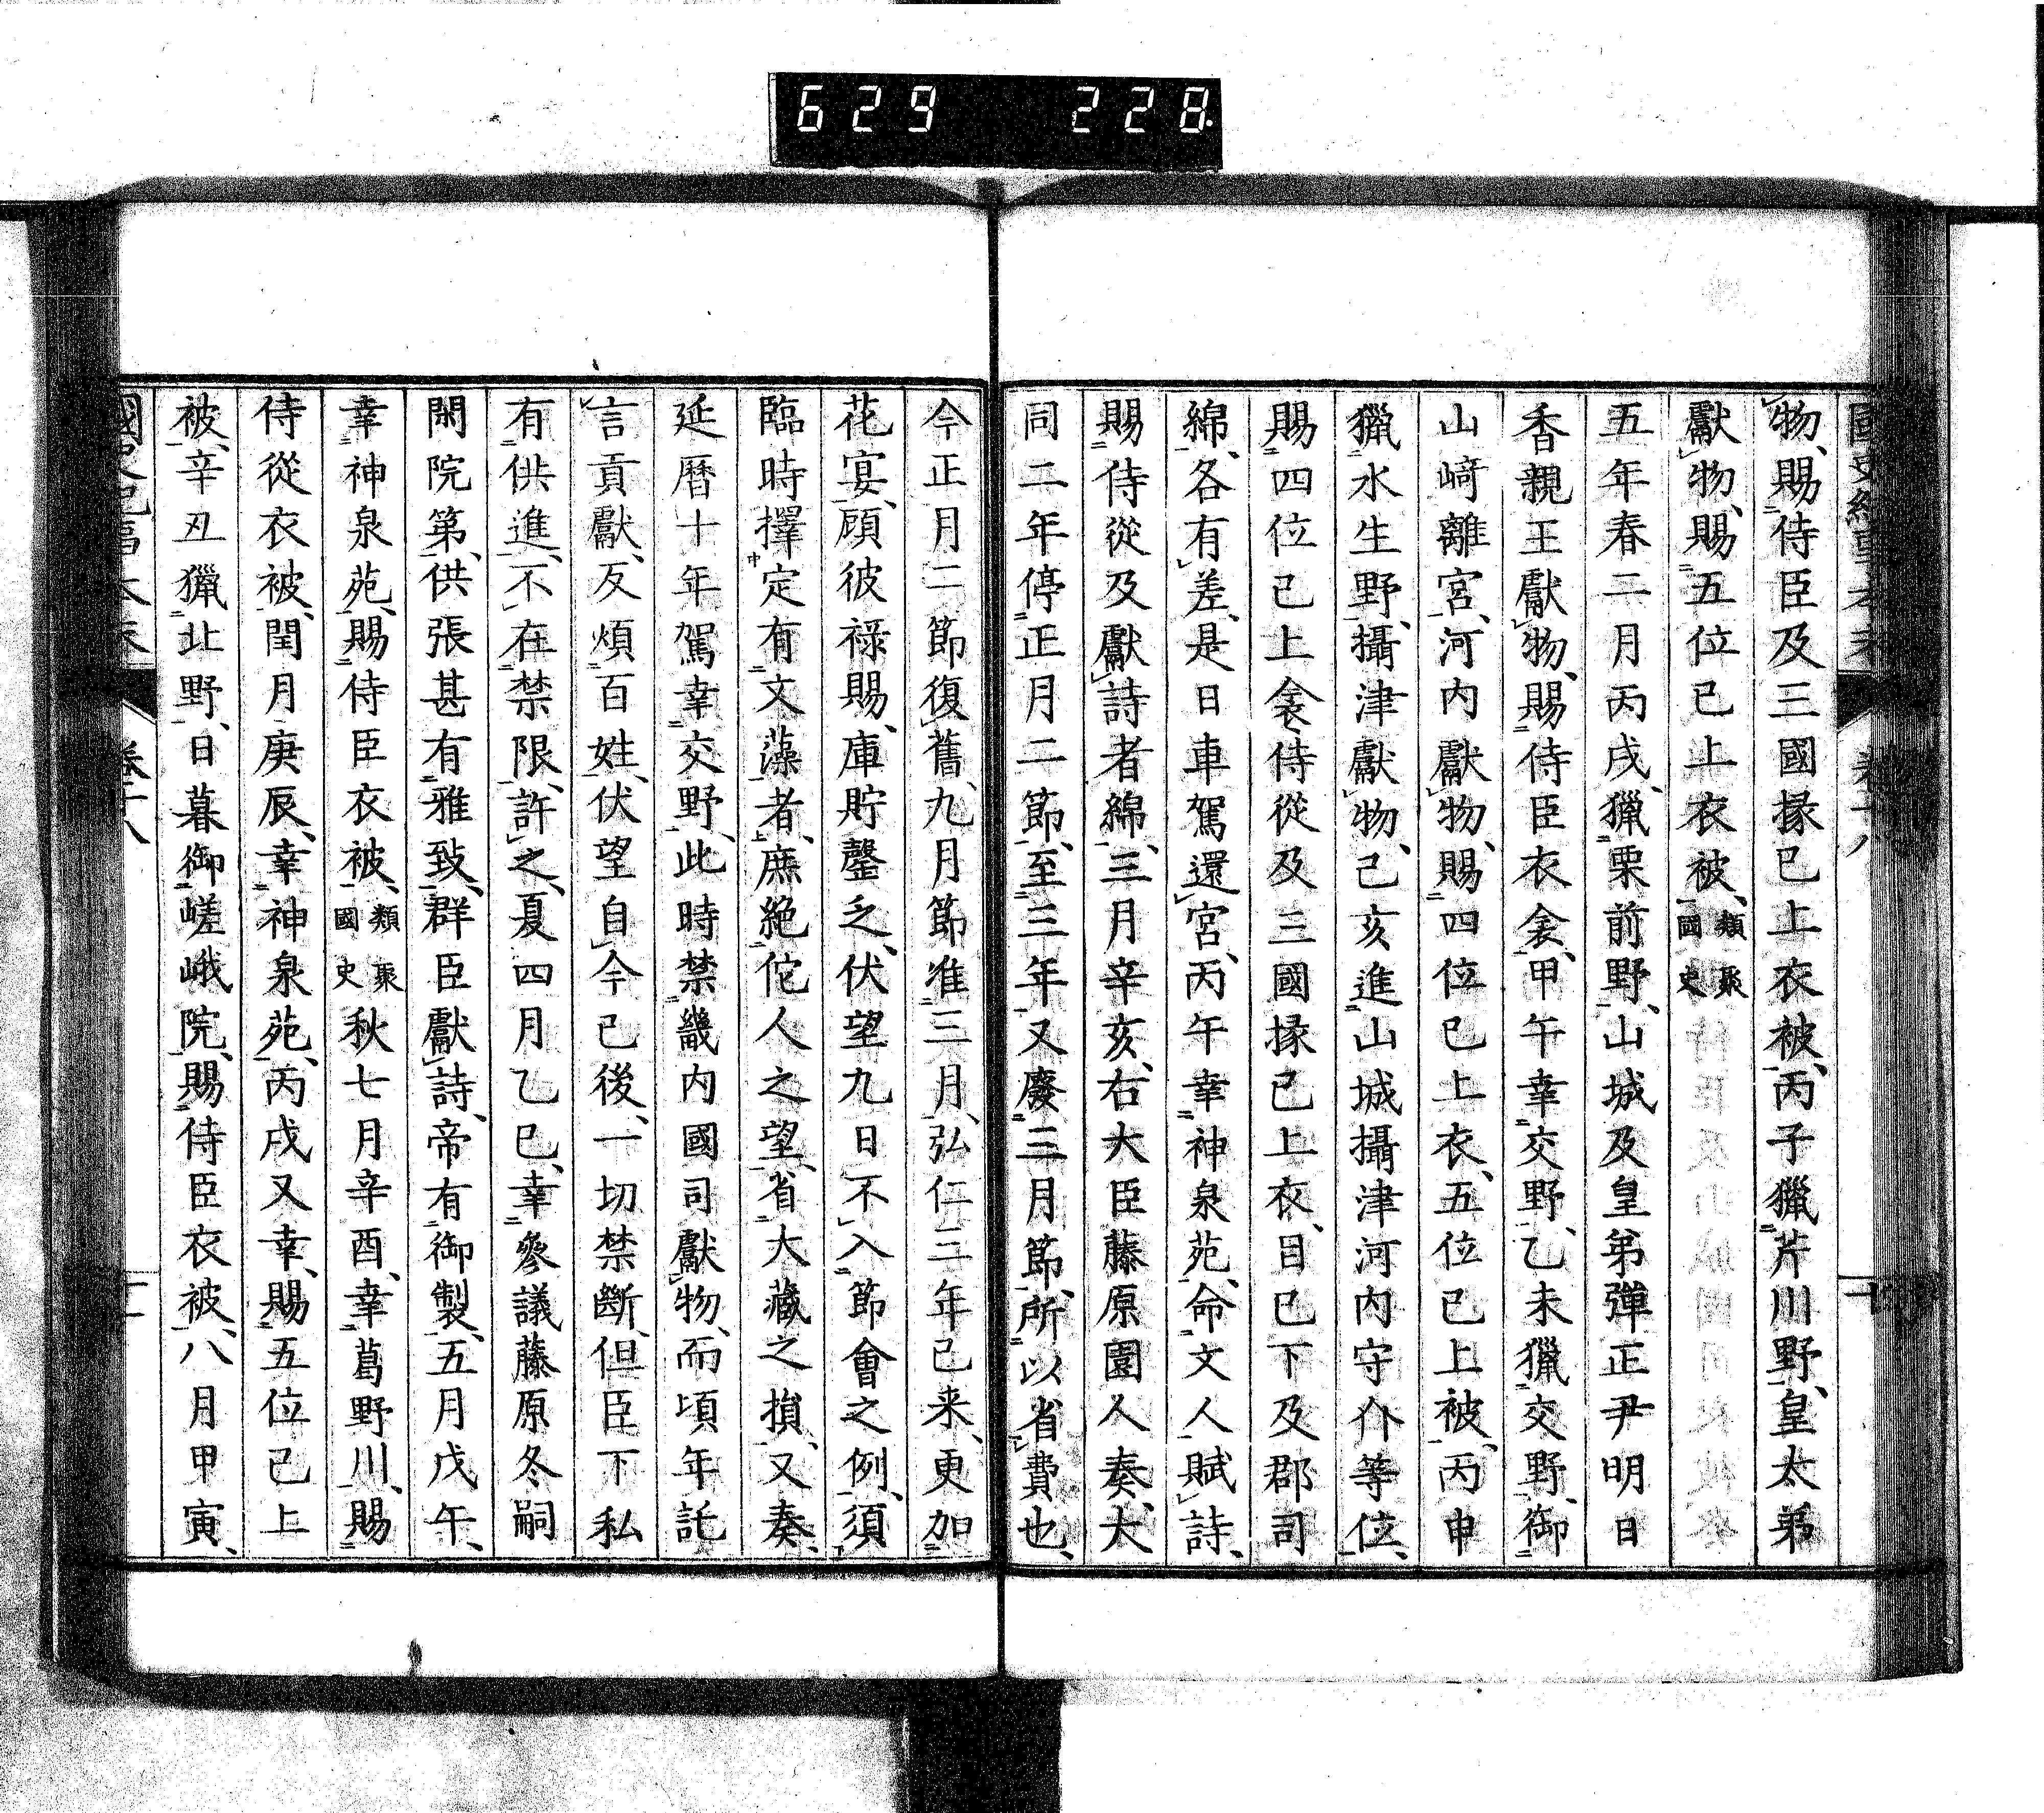 629 228
物、賜侍臣及三國掾已上衣被、丙子獵芹川野、皇太弟
獻物、賜五位已上衣被、類聚國史
五年春二月丙戌、獵栗前野、山城及皇弟彈正尹明日
香親王獻物、賜侍臣衣衾、甲午幸交野、乙未獵交野、御
山﨑離宮、河内獻物、賜四位已上衣、五位已上被、丙申
獵水生野、攝津獻物、己亥進山城攝津河内守介等位、
賜四位已上衾、侍從及三國掾已上衣、目已下及郡司
綿、各有差、是日車駕還宮、丙午幸神泉苑、命文人賦詩、
賜侍從及獻詩者綿、三月辛亥、右大臣藤原園人奏、大
同二年停正月二節、至三年又廢三月節、所以省費也、
今正月二節復舊、九月節准三月、弘仁三年已来、更加
花宴、顧彼祿賜、庫貯罄乏、伏望九日不入節會之例、須
臨時擇定有文藻者、庶絶佗人之望、省大藏之損、又奏、
延曆十年駕幸交野、此時禁畿内國司獻物、而頃年託
言貢獻、反煩百姓、伏望自今已後、一切禁斷、但臣下私
有供進、不在禁限、許之、夏四月乙巳、幸參議藤原冬嗣
閑院第、供張甚有雅致、群臣獻詩、帝有御製、五月戊午、
幸神泉苑、賜侍臣衣被、類聚國史秋七月辛酉、幸葛野川、賜
侍從衣被、閏月庚辰、幸神泉苑、丙戌又幸、賜五位已上
被、辛丑獵北野、日暮御嵯峨院、賜侍臣衣被、八月甲寅、